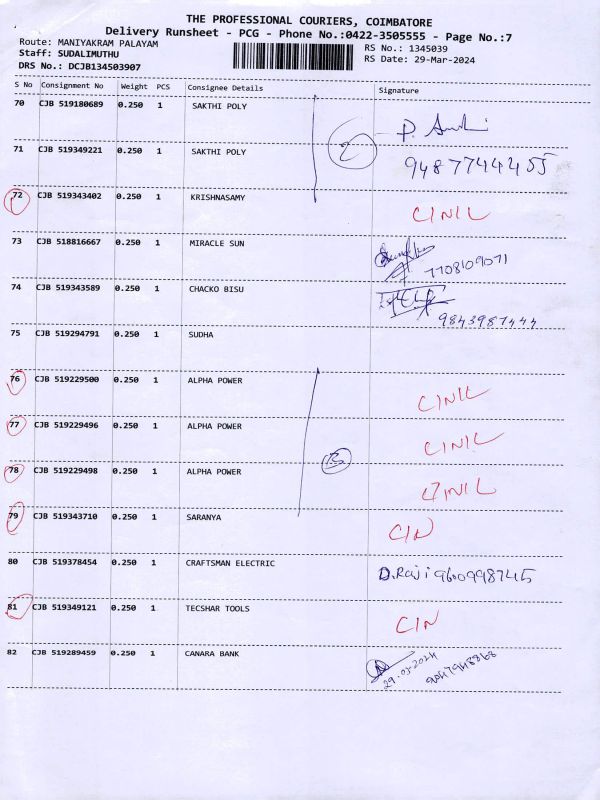 THE PROFESSIONAL COURIERS, COIMBATORE
Delivery Runsheet - PCG - Phone No.:0422-3505555 - Page No.:7
Route: MANIYAKRAM PALAYAM RS No.: 1345039
Staff: SUDALIMUTHU RS Date: 29-Mar-2024
DRS No.: DCJB134503907
S No Consignment No Weight PCS Consignee Details Signature
70 CJB 519180689 0.250 1 SAKTHI POLY
71 CJB 519349221 0.250 1 SAKTHI POLY 2 9487744455
72 CJB 519343402 0.250 1 KRISHNASAMY CINIL
73 CJB 518816667 0.250 1 MIRACLE SUN 7708109071
74 CJB 519343589 0.250 1 CHACKO BISU 9843987444
75 CJB 519294791 0.250 1 SUDHA
76 CJB 519229500 0.250 1 ALPHA POWER CINIL
77 CJB 519229496 0.250 1 ALPHA POWER CINIL
78 CJB 519229498 0.250 1 ALPHA POWER CINIL
79 CJB 519343710 0.250 1 SARANYA CIN
80 CJB 519378454 0.250 1 CRAFTSMAN ELECTRIC D.Raji 9600998745
81 CJB 519349121 0.250 1 TECSHAR TOOLS CIN
82 CJB 519289459 0.250 1 CANARA BANK 29-03-2024